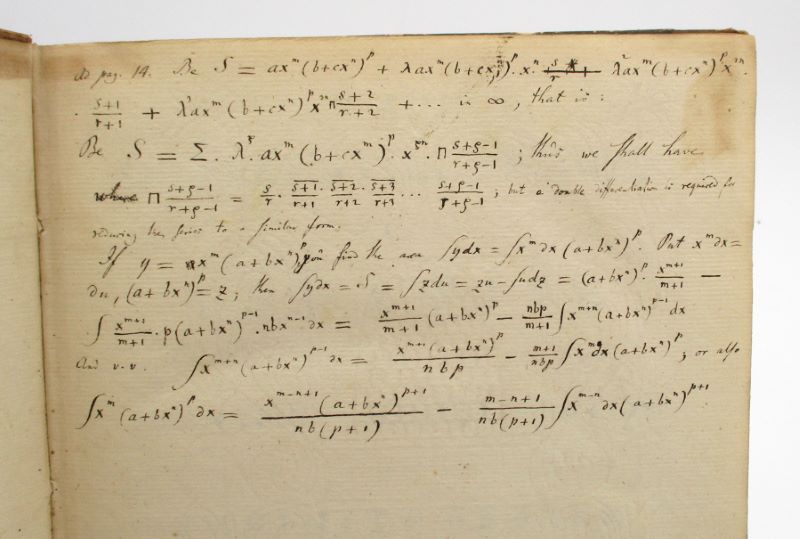 Ad pag. 14. Be S = ax^m(b+cx^n)^p + λax^m(b+cx^n)^p. x^n. s/r + λ²ax^m(b+cx^n)^p x^{2n}.
. (s+1)/(r+1) + λ³ax^m(b+cx^n)^p x^{3n} Π (s+2)/(r+2) + ... in ∞, that is:
Be S = Σ. λ^ς. ax^m(b+cx^m)^p. x^{ςn}. Π (s+ς-1)/(r+ς-1); thus we shall have
where Π (s+ς-1)/(r+ς-1) = s/r . (s+1)/(r+1) . (s+2)/(r+2) . (s+3)/(r+3) ... (s+ς-1)/(r+ς-1); but a double differentiation is required for
reducing the series to a similar form.
If y = x^m(a+bx^n)^p, you find the area ∫ydx = ∫x^m dx(a+bx^n)^p. Put x^m dx =
du, (a+bx^n)^p = z; then ∫ydx = S = ∫zdu = zu - ∫udz = (a+bx^n)^p. x^{m+1}/(m+1) -
∫ x^{m+1}/(m+1) . p(a+bx^n)^{p-1}. nbx^{n-1}dx = x^{m+1}/(m+1) (a+bx^n)^p - nbp/(m+1) ∫x^{m+n}(a+bx^n)^{p-1}dx
And v.v. ∫x^{m+n}(a+bx^n)^{p-1}dx = x^{m+1}(a+bx^n)^p/nbp - (m+1)/nbp ∫x^m dx(a+bx^n)^p; or also
∫x^m(a+bx^n)^p dx = x^{m-n+1}(a+bx^n)^{p+1}/nb(p+1) - (m-n+1)/nb(p+1) ∫x^{m-n}dx(a+bx^n)^{p+1}.